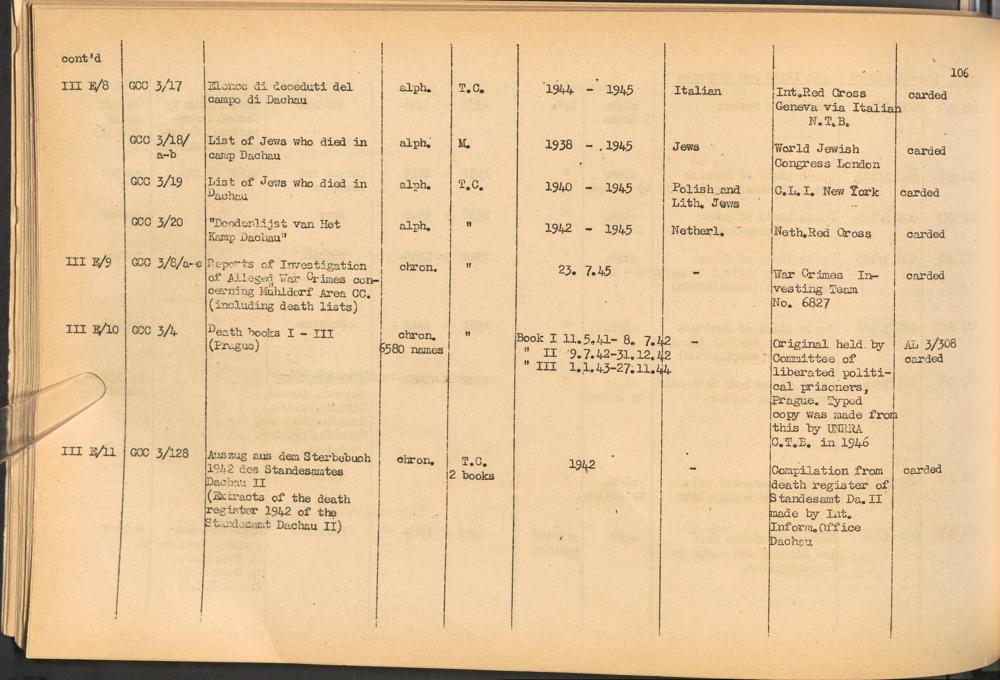 cont'd
106
III E/8 GCC 3/17 Elenco di deceduti del alph. T.C. 1944 - 1945 Italian Int.Red Cross carded
campo di Dachau Geneva via Italian
N.T.B.
GCC 3/18/ List of Jews who died in alph. M. 1938 - 1945 Jews World Jewish carded
a-b camp Dachau Congress London
GCC 3/19 List of Jews who died in alph. T.C. 1940 - 1945 Polish and C.L.I. New York carded
Dachau Lith. Jews
GCC 3/20 "Doodenlijst van Het alph. " 1942 - 1945 Netherl. Neth.Red Cross carded
Kamp Dachau"
III E/9 GCC 3/8/a-e Reports of Investigation chron. " 23. 7.45 - War Crimes In- carded
of Alleged War Crimes con- vesting Team
cerning Mühldorf Area CC. No. 6827
(including death lists)
III E/10 GCC 3/4 Death books I - III chron. " Book I 11.5.41- 8. 7.42 - Original held by AL 3/308
(Prague) 6580 names " II 9.7.42-31.12.42 Committee of carded
" III 1.1.43-27.11.44 liberated politi-
cal prisoners,
Prague. Typed
copy was made from
this by UNRRA
C.T.B. in 1946
III E/11 GCC 3/128 Auszug aus dem Sterbebuch chron. T.C. 1942 - Compilation from carded
1942 des Standesamtes 2 books death register of
Dachau II Standesamt Da.II
(Extracts of the death made by Int.
register 1942 of the Inform.Office
Standesamt Dachau II) Dachau